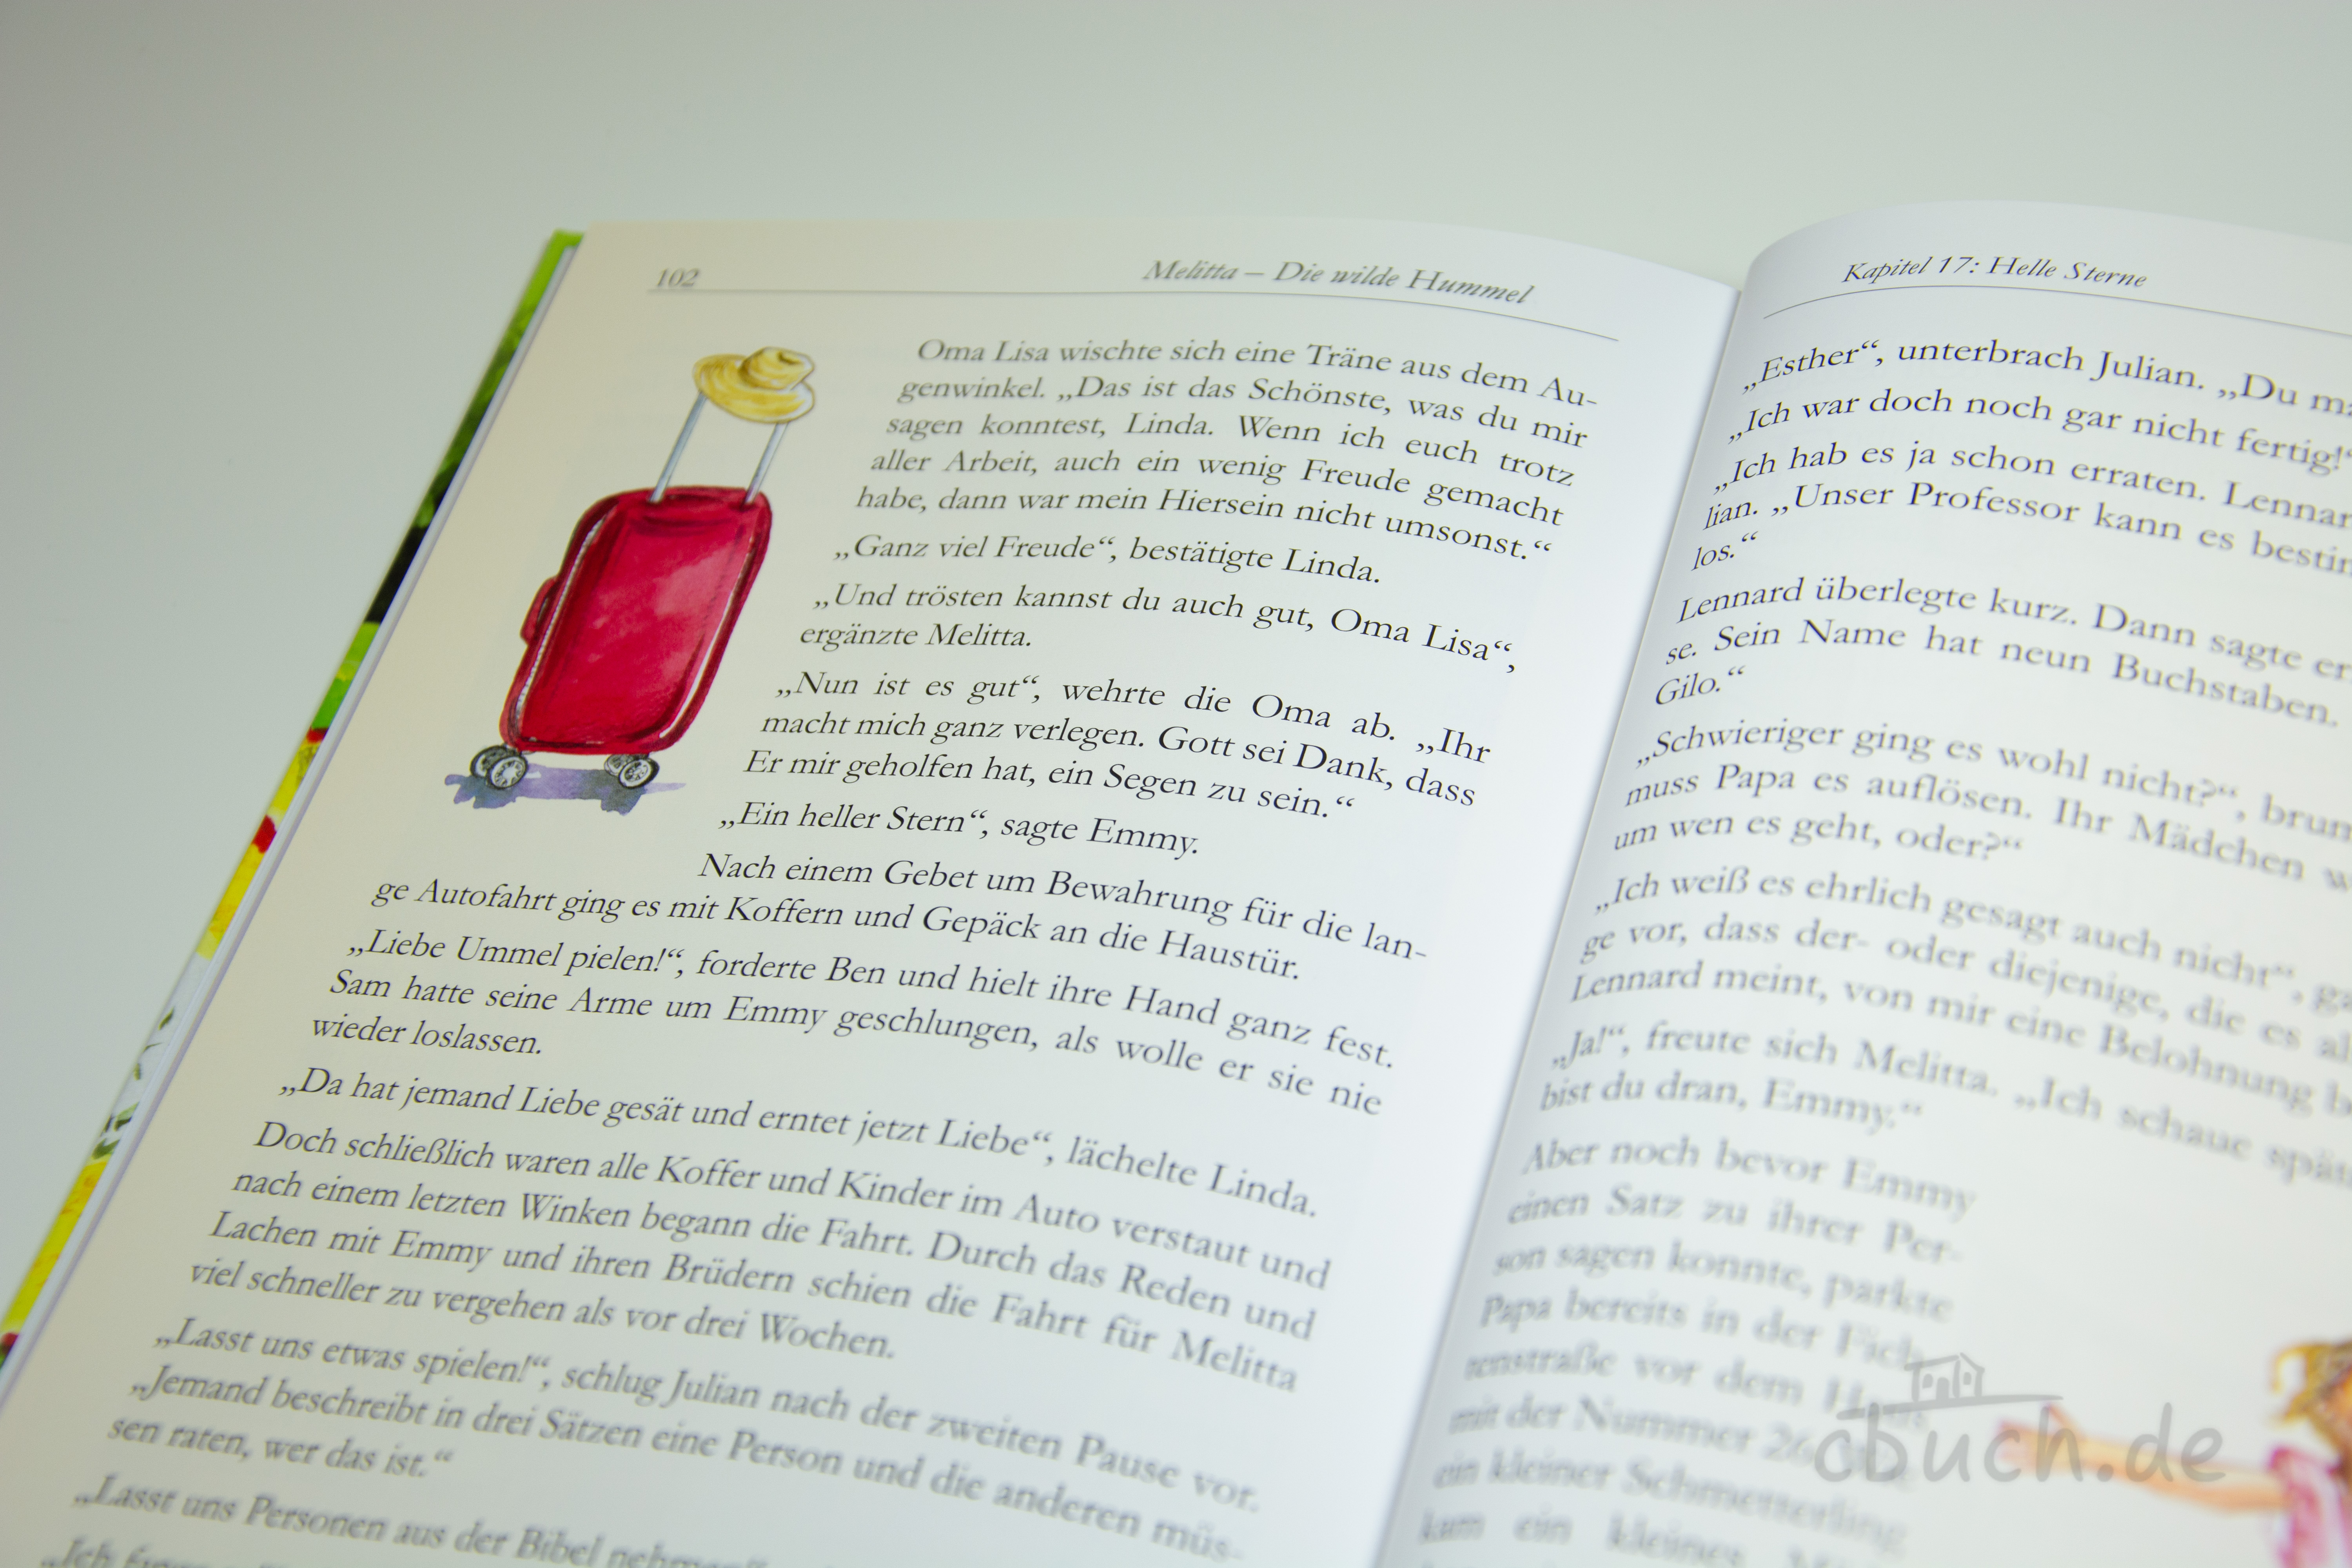 102
Melitta – Die wilde Hummel
Oma Lisa wischte sich eine Träne aus dem Au-
genwinkel. „Das ist das Schönste, was du mir
sagen konntest, Linda. Wenn ich euch trotz
aller Arbeit, auch ein wenig Freude gemacht
habe, dann war mein Hiersein nicht umsonst.“
„Ganz viel Freude“, bestätigte Linda.
„Und trösten kannst du auch gut, Oma Lisa“,
ergänzte Melitta.
„Nun ist es gut“, wehrte die Oma ab. „Ihr
macht mich ganz verlegen. Gott sei Dank, dass
Er mir geholfen hat, ein Segen zu sein.“
„Ein heller Stern“, sagte Emmy.
Nach einem Gebet um Bewahrung für die lan-
ge Autofahrt ging es mit Koffern und Gepäck an die Haustür.
„Liebe Ummel pielen!“, forderte Ben und hielt ihre Hand ganz fest.
Sam hatte seine Arme um Emmy geschlungen, als wolle er sie nie
wieder loslassen.
„Da hat jemand Liebe gesät und erntet jetzt Liebe“, lächelte Linda.
Doch schließlich waren alle Koffer und Kinder im Auto verstaut und
nach einem letzten Winken begann die Fahrt. Durch das Reden und
Lachen mit Emmy und ihren Brüdern schien die Fahrt für Melitta
viel schneller zu vergehen als vor drei Wochen.
„Lasst uns etwas spielen!“, schlug Julian nach der zweiten Pause vor.
„Jemand beschreibt in drei Sätzen eine Person und die anderen müs-
sen raten, wer das ist.“
„Lasst uns Personen aus der Bibel nehmen“
„Ich
Kapitel 17: Helle Sterne
„Esther“, unterbrach Julian. „Du
„Ich war doch noch gar nicht fertig!“
„Ich hab es ja schon erraten.
lian. „Unser Professor kann es
los.“
Lennard überlegte kurz. Dann sagte er
se. Sein Name hat neun Buchstaben.
Gilo.“
„Schwieriger ging es wohl nicht?“,
muss Papa es auflösen. Ihr Mädchen
um wen es geht, oder?“
„Ich weiß es ehrlich gesagt auch nicht“,
ge vor, dass der- oder diejenige, die es
Lennard meint, von mir eine Belohnung
„Ja!“, freute sich Melitta. „Ich schaue
bist du dran, Emmy.“
Aber noch bevor Emmy
einen Satz zu ihrer Per-
son sagen konnte, parkte
Papa bereits in der Fich-
tenstraße vor dem
mit der Nummer
ein kleiner Schmetterling
kam ein kleines
cbuch.de